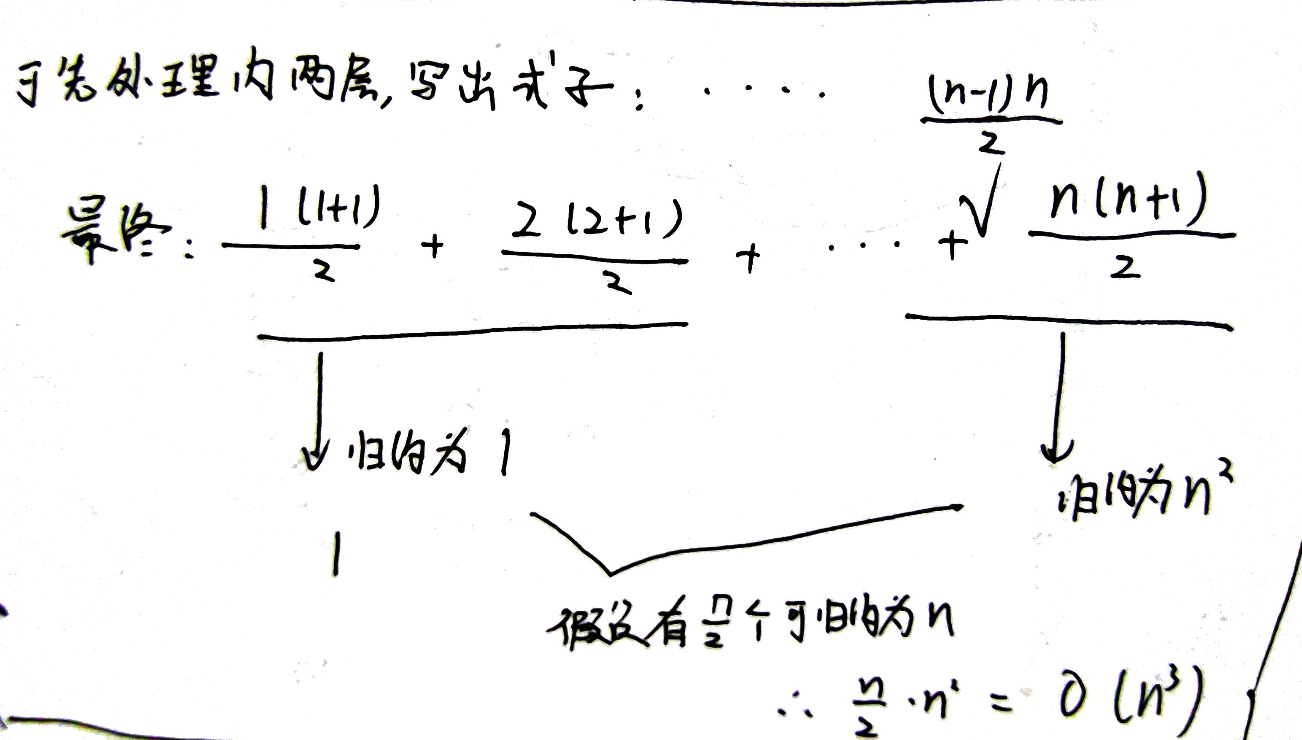 可先处理内两层,写出式子: ····
(n-1)n/2
最终: 1(1+1)/2 + 2(2+1)/2 + ··· + √ n(n+1)/2
归约为 1
归约为 n²
1
假设有 n/2 个可归约为 n
∴ n/2 · n² = O (n³)